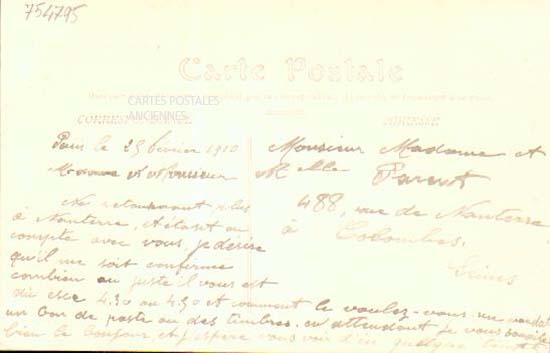 754795
Carte Postale
CARTES POSTALES
ANCIENNES
CORRESPONDANCE
ADRESSE
Paris le 25 février 1910
Madame et Monsieur
Ne retournant plus
à Nanterre, et étant en
compte avec vous, je désire
qu'il me soit confirmé
combien au juste il vous est
dû est ce 4.30 ou 4.50 et comment le voulez-vous un mandat
un bon de poste ou des timbres, en attendant je vous souhaite
bien le bonjour et j'espère vous voir d'ici quelque temps
Monsieur Madame et
Melle Parent
488, rue de Nanterre
à Colombes,
Seine